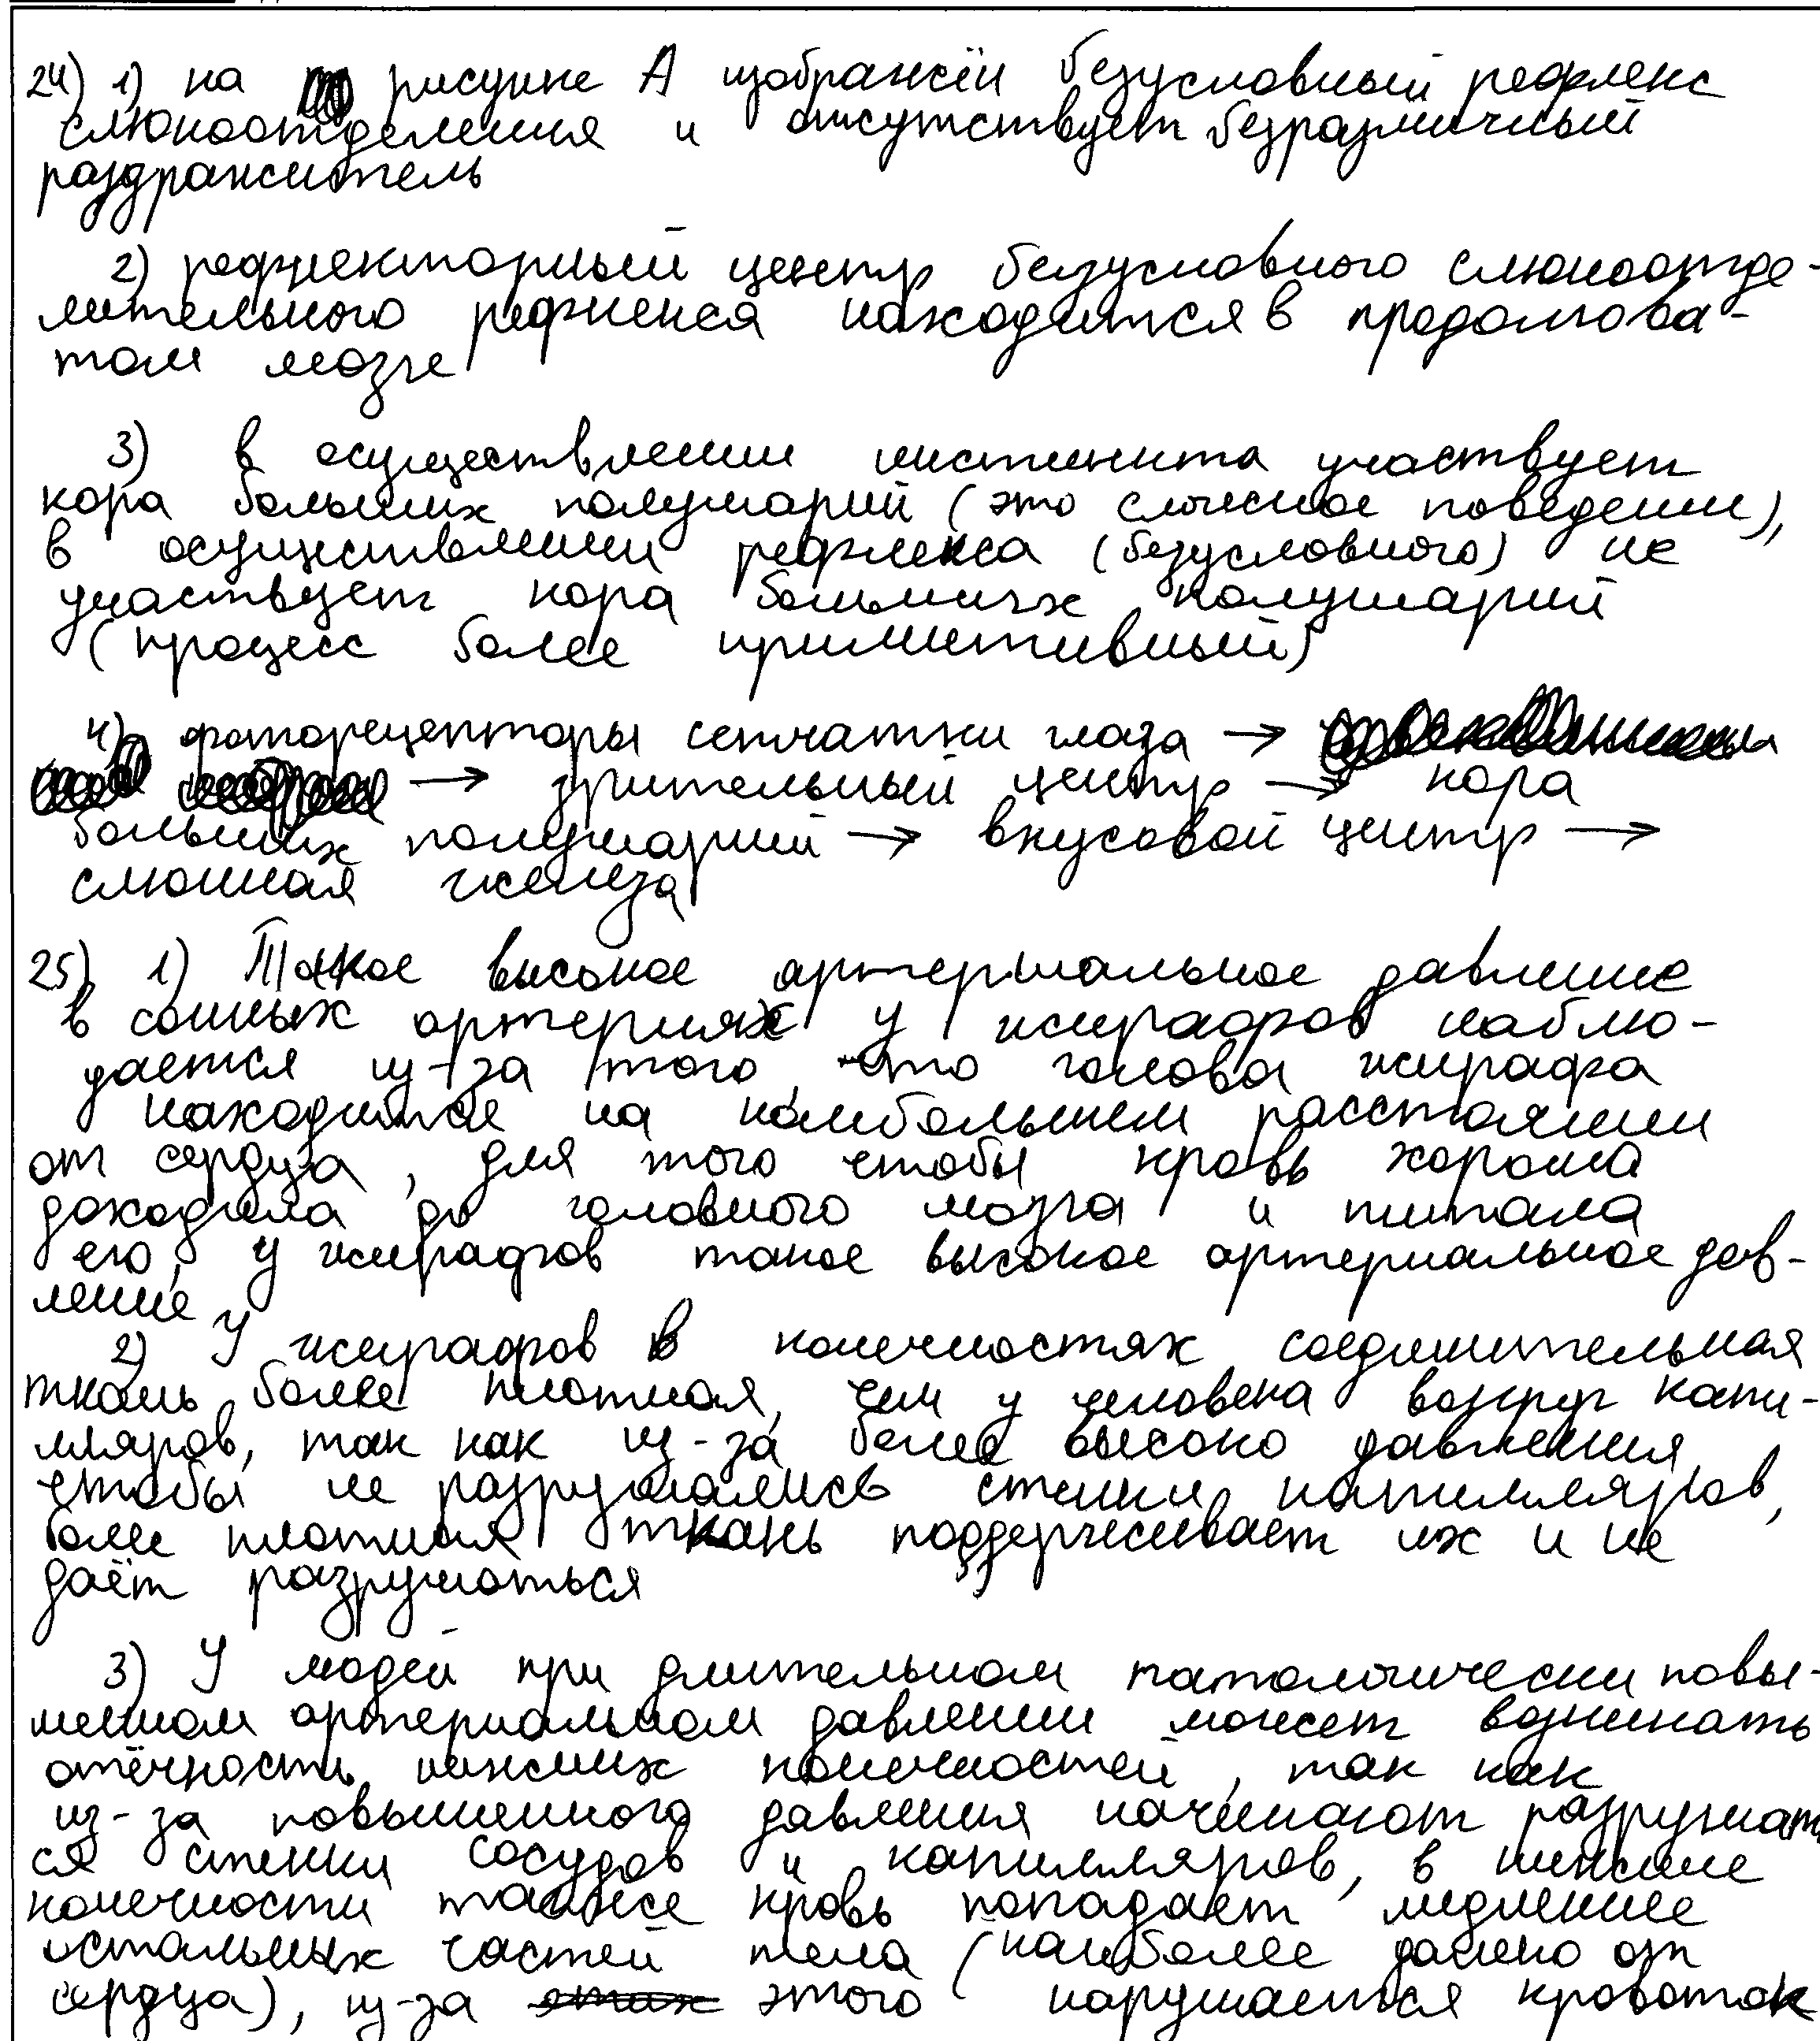 24) 1) на рисунке А изображён безусловный рефлекс
слюноотделения и отсутствует безразличный
раздражитель
2) рефлекторный центр безусловного слюноотде-
лительного рефлекса находится в продолгова-
том мозге
3) в осуществлении инстинкта участвует
кора больших полушарий (это сложное поведение),
в осуществлении рефлекса (безусловного) не
участвует кора больших полушарий
(процесс более примитивный)
4) фоторецепторы сетчатки глаза →
→ зрительный центр → кора
больших полушарий → вкусовой центр →
слюнная железа
25) 1) Такое высокое артериальное давление
в сонных артериях у жирафов наблю-
дается из-за того, что голова жирафа
находится на наибольшем расстоянии
от сердца, для того чтобы кровь хорошо
доходила до головного мозга и питала
его, у жирафов такое высокое артериальное дав-
ление
2) У жирафов в конечностях соединительная
ткань более плотная, чем у человека вокруг капи-
лляров, так как из-за более высоко давления,
чтобы не разрушались стенки капилляров,
более плотная ткань поддерживает их и не
даёт разрушаться
3) У людей при длительном патологически повы-
шенном артериальном давлении может возникать
отёчность нижних конечностей, так как
из-за повышенного давления начинают разрушать
ся стенки сосудов и капилляров, в нижние
конечности также кровь попадает медленнее
остальных частей тела (наиболее далеко от
сердца), из-за этого нарушается кровоток